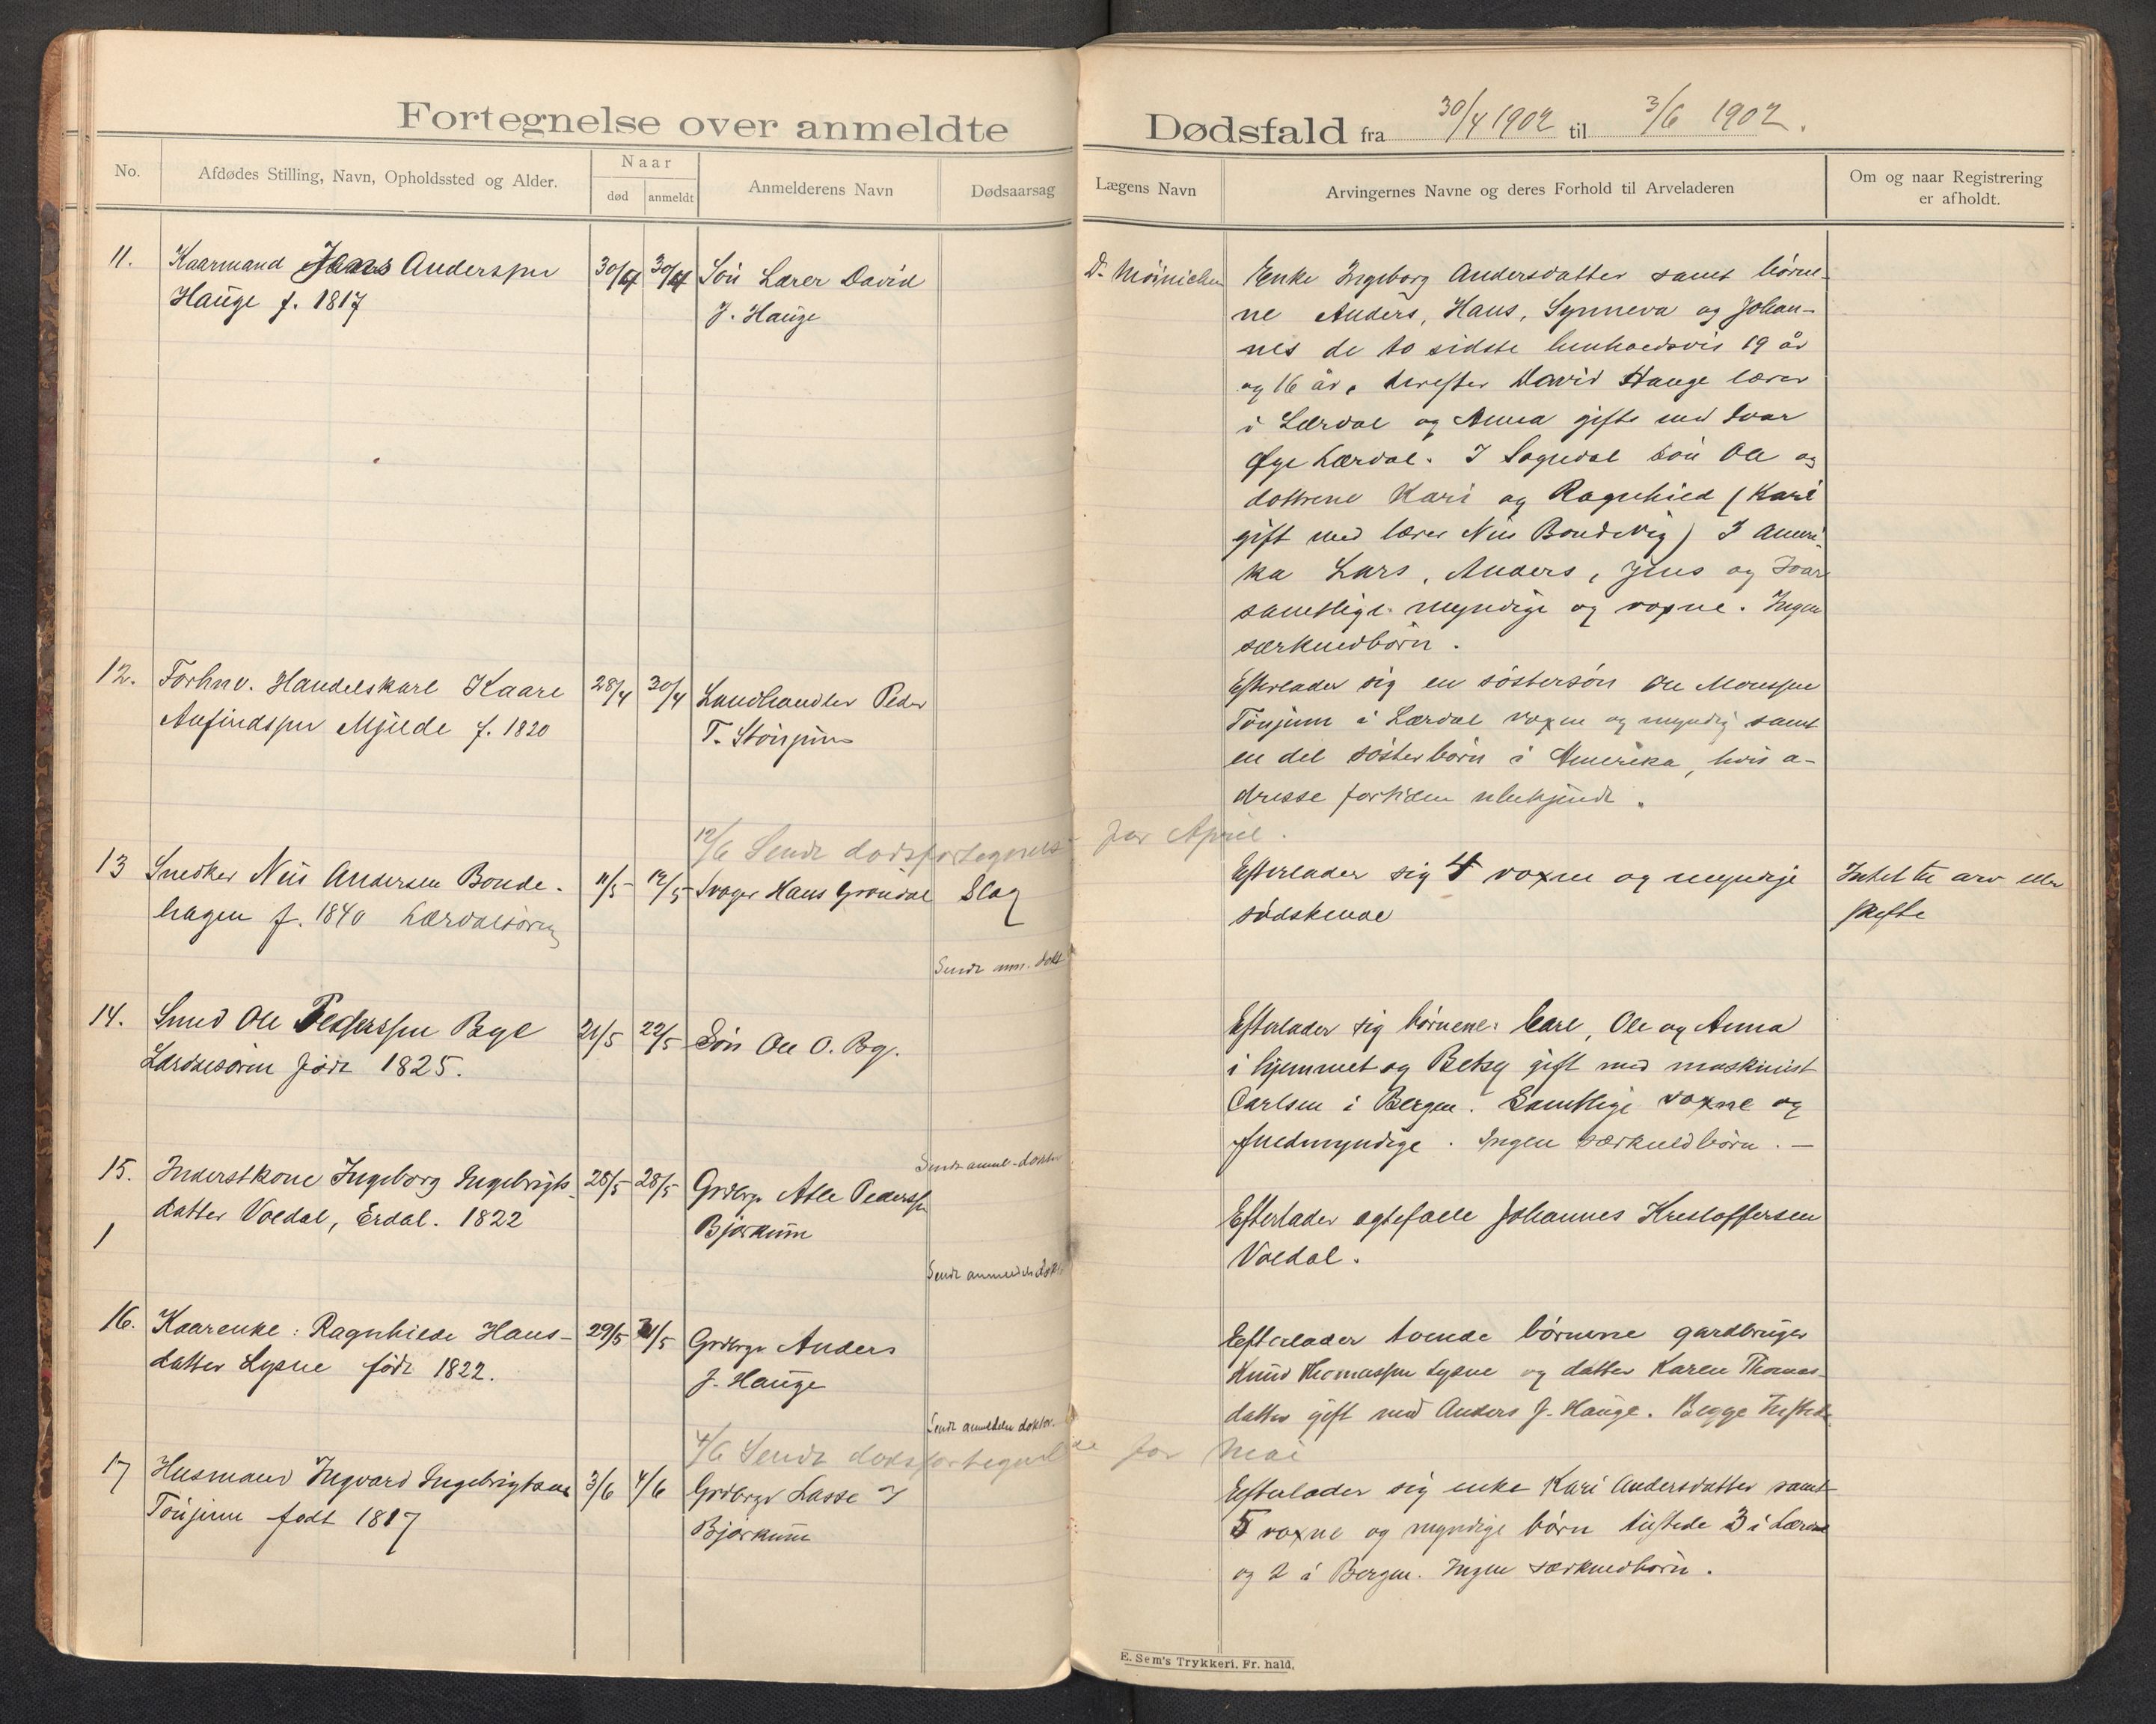 Fortegnelse over anmeldte Dødsfald fra 30/4 1902 til 3/6 1902.
No.
Afdødes Stilling, Navn, Opholdssted og Alder.
Naar
død
anmeldt
Anmelderens Navn
Dødsaarsag
Lægens Navn
Arvingernes Navne og deres Forhold til Arveladeren
Om og naar Registrering
er afholdt.
11.
Kaarmand Jens Anderssen
Hauge f. 1817
30/4
30/4
Søn Lærer David
J. Hauge
Enke Ingeborg Andersdatter samt børne-
ne Anders, Hans, Synneva og Johan-
nes de to sidste henholdsvis 19 år
og 16 år, derefter David Hauge lærer
i Lærdal og Anna gift med Ivar
Øye Lærdal. I Sogndal søn Ole og
dottrene Kari og Ragnhild (Kari
gift med lærer Nils Bondevig) I Ameri-
ka Lars, Anders, Jens og Ivar
samtlige myndige og voxne. Ingen
særkuldbørn.
12.
Forhnv. Handelskarl Kaare
Anfindssen Mjelde f. 1820
28/4
30/4
Landhandler Peder
T. Tønjum
Efterlader sig en søstersøn Ole Monssen
Tønjum i Lærdal voxen og myndig samt
en del søsterbørn i Amerika, hvis a-
dresse fortiden ubekjendt.
12/6 Sendt dødsfortegnelse for April.
13
Snedker Nils Andersen Bonde-
hagen f. 1840 Lærdalsøren
11/5
12/5
Svoger Hans Grøndal
Slag
Efterlader sig 4 voxne og myndige
sødskende
Intet til arv eller
skifte
Sendt anm. dokt
14.
Smed Ole Pederssen Bye
Lærdalsøren født 1825.
21/5
22/5
Søn Ole O. Bye.
Efterlader sig børnene: Carl, Ole og Anna
i hjemmet og Betsy gift med maskinist
Carlsen i Bergen. Samtlige voxne og
fuldmyndige. Ingen særkuldbørn. —
Sendt anmel. doktor
15.
Inderstkone Ingeborg Ingebrigts-
datter Voldal, Erdal. 1822
28/5
28/5
Grdbrgr Atle Pederssen
Bjørkum
Efterlader egtefælle Johannes Kristoffersen
Voldal.
Sendt anmeldels. dokt
16.
Kaarenke: Ragnhilde Hans-
datter Lysne født 1822.
29/5
31/5
Grdbrgr Anders
J. Hauge
Efterlader tvende børnene gardbruger
Knud Thomassen Lysne og datter Karen Thomas-
datter gift med Anders J. Hauge. Begge tilstede
Sendt anmeldelse doktor.
4/6 Sendt dødsfortegnelse for Mai
17
Husmand Ingvard Ingebrigtsen
Tønjum født 1817
3/6
4/6
Grdbrgr Lasse I
Bjørkum
Efterlader sig enke Kari Andersdatter samt
5 voxne og myndige børn tilstede 3 i Lærdal
og 2 i Bergen. Ingen særkuldbørn.
E. Sem's Trykkeri, Fr. hald.